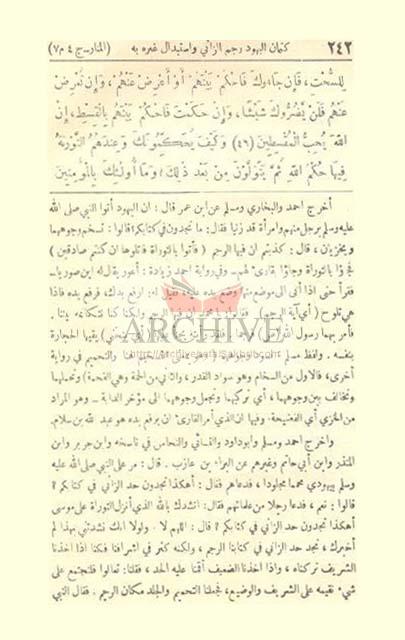 ٢٤٢ كتمان اليهود رجم الزاني واستبدال غيره به (المنار-ج ٤ م ٧)
لِلسُّحْتِ، فَإِن جَاءُوكَ فَاحْكُم بَيْنَهُمْ أَوْ أَعْرِضْ عَنْهُمْ، وَإِن تُعْرِضْ
عَنْهُمْ فَلَن يَضُرُّوكَ شَيْئًا، وَإِنْ حَكَمْتَ فَاحْكُم بَيْنَهُم بِالْقِسْطِ، إِنَّ
اللهَ يُحِبُّ الْمُقْسِطِينَ (٤٦) وَكَيْفَ يُحَكِّمُونَكَ وَعِندَهُمُ التَّوْرَىةُ
فِيهَا حُكْمُ اللهِ ثُمَّ يَتَوَلَّوْنَ مِنْ بَعْدِ ذٰلِكَ؛ وَمَا أُولٰئِكَ بِالْمُؤْمِنِينَ
أخرج احمد والبخاري ومسلم عن ابن عمر قال : ان اليهود أتوا النبي صلى الله
عليه وسلم برجل منهم وامرأة قد زنيا فقال: ما تجدون في كتابكم؟ قالوا : تسخم وجوههما
ويخزيان ، قال : كذبتم ان فيها الرجم ( فأتوا بالتوراة فاتلوها ان كنتم صادقين )
فجاؤا بالتوراة وجاؤا بقارئ لهم ـ وفي رواية احمد زيادة : أعور يقال له ابن صوريا ـ
فقرأ حتى اذا أتى الى موضع منها وضع يده عليه، فقيل له: ارفع يدك، فرفع يده فاذا
هي تلوح ( أي آية الرجم )
ARCHIVE
بنفسه . ولفظ مسلم والتحميم في رواية
أخرى، فالاول من السخام وهو سواد القدر ، والثاني من الحمة وهي الفحمة) ونحملهما
ونخالف بين وجوههما ، أي نركبهما ونجعل وجوههما الى مؤخر الدابة ـ وهو المراد
من الخزي أي الفضيحة. وفيها ان الذي أمر القارئ ان يرفع يده هو عبد الله بن سلام.
واخرج احمد ومسلم وابوداود والنسائي والنحاس في ناسخه وابن جرير وابن
المنذر وابن أبي حاتم وغيرهم عن البراء بن عازب . قال : مر على النبي صلى الله عليه
وسلم يهودي محمما مجلودا ، فدعاهم فقال : أهكذا تجدون حد الزاني في كتابكم ؟
قالوا : نعم ، فدعا رجلا من علمائهم فقال: انشدك بالله الذي أنزل التوراة على موسى
أهكذا تجدون حد الزاني في كتابكم ؟ قال : اللهم لا . ولولا انك نشدتني بهذا لم
أخبرك ، نجد حد الزاني في كتابنا الرجم ، ولكنه كثر في اشرافنا فكنا اذا اخذنا
الشريف تركناه ، واذا اخذنا الضعيف أقمنا عليه الحد ، فقلنا : تعالوا فلنجتمع على
شيء نقيمه على الشريف والوضيع ، فجعلنا التحميم والجلد مكان الرجم . فقال النبي